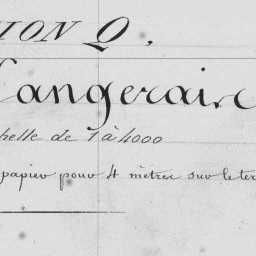 ION Q.
angerair
helle de 1 à 4000
papier pour 4 mètres sur le ter